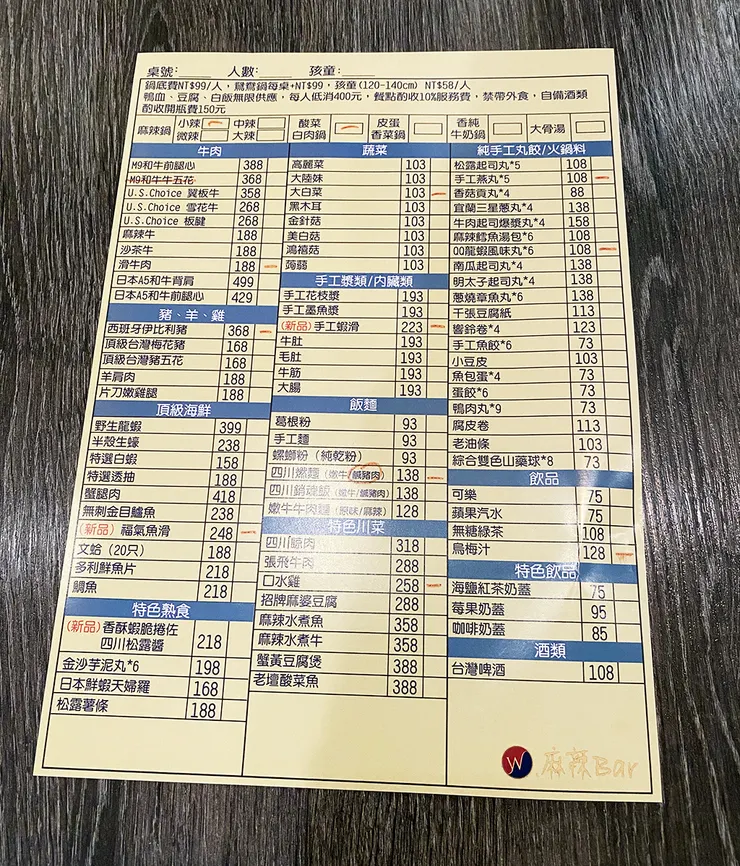 桌號:＿＿＿ 人數:＿＿＿ 孩童:＿＿＿
鍋底費NT$99/人，鴛鴦鍋每桌+NT$99，孩童(120-140cm) NT$58/人
鴨血、豆腐、白飯無限供應，每人低消400元，餐點酌收10%服務費，禁帶外食，自備酒類
酌收開瓶費150元
麻辣鍋 小辣 中辣 微辣 大辣 酸菜白肉鍋 皮蛋香菜鍋 香純牛奶鍋 大骨湯
牛肉
M9和牛前腿心 388
M9和牛牛五花 368
U.S.Choice 翼板牛 358
U.S.Choice 雪花牛 268
U.S.Choice 板腱 268
麻辣牛 188
沙茶牛 188
滑牛肉 188
日本A5和牛肩肩 499
日本A5和牛前腿心 429
豬、羊、雞
西班牙伊比利豬 368
頂級台灣梅花豬 168
頂級台灣豬五花 168
羊肩肉 188
片刀嫩雞腿 188
頂級海鮮
野生龍蝦 399
半殼生蠔 238
特選白蝦 158
特選透抽 188
蟹腿肉 418
無刺金目鱸魚 238
(新品) 福氣魚滑 248
文蛤（20只） 188
多利鮮魚片 218
鯛魚 218
特色熟食
(新品) 香酥蝦脆捲佐
四川松露醬 218
金沙芋泥丸*6 198
日本鮮蝦天婦羅 168
松露薯條 188
蔬菜
高麗菜 103
大陸妹 103
大白菜 103
黑木耳 103
金針菇 103
美白菇 103
鴻禧菇 103
蒟蒻 103
手工漿類/內臟類
手工花枝漿 193
手工墨魚漿 193
(新品) 手工蝦滑 223
牛肚 193
毛肚 193
牛筋 193
大腸 193
飯麵
葛根粉 93
手工麵 93
螺螄粉（純乾粉） 93
四川燃麵（嫩牛/鹹豬肉） 138
四川銷魂飯（嫩牛/鹹豬肉） 138
嫩牛牛肉麵（原味/麻辣） 128
特色川菜
四川晾肉 318
張飛牛肉 288
口水雞 258
招牌麻婆豆腐 288
麻辣水煮魚 358
麻辣水煮牛 358
蟹黃豆腐煲 388
老壇酸菜魚 388
純手工丸餃/火鍋料
松露起司丸*5 108
手工燕丸*5 108
香菇貢丸*4 88
宜蘭三星蔥丸*4 138
牛肉起司爆漿丸*4 158
麻辣鱈魚湯包*6 108
QQ龍蝦風味丸*6 108
南瓜起司丸*4 138
明太子起司丸*4 138
蔥燒章魚丸*6 138
千張豆腐紙 113
響鈴卷*4 123
手工魚餃*6 73
小豆皮 103
魚包蛋*4 73
蛋餃*6 73
鴨肉丸*9 73
腐皮卷 113
老油條 103
綜合雙色山藥球*8 73
飲品
可樂 75
蘋果汽水 75
無糖綠茶 108
烏梅汁 128
特色飲品
海鹽紅茶奶蓋 75
莓果奶蓋 95
咖啡奶蓋 85
酒類
台灣啤酒 108
W 麻辣Bar